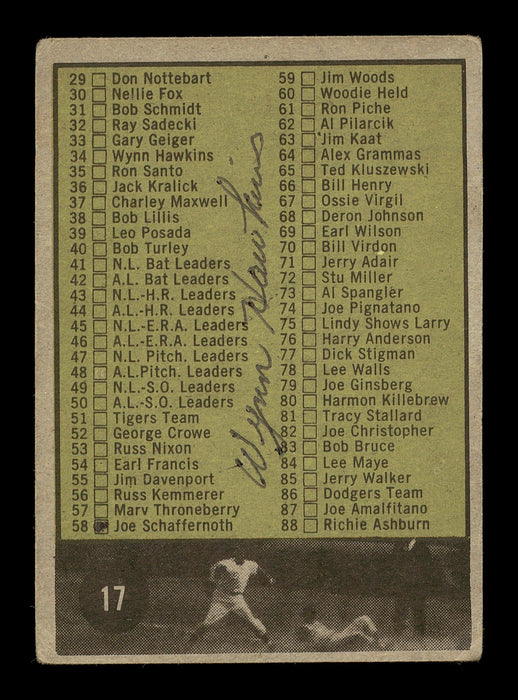 29 Don Nottebart
30 Nellie Fox
31 Bob Schmidt
32 Ray Sadecki
33 Gary Geiger
34 Wynn Hawkins
35 Ron Santo
36 Jack Kralick
37 Charley Maxwell
38 Bob Lillis
39 Leo Posada
40 Bob Turley
41 N.L. Bat Leaders
42 A.L. Bat Leaders
43 N.L.-H.R. Leaders
44 A.L.-H.R. Leaders
45 N.L.-E.R.A. Leaders
46 A.L.-E.R.A. Leaders
47 N.L. Pitch. Leaders
48 A.L.Pitch. Leaders
49 N.L.-S.O. Leaders
50 A.L.-S.O. Leaders
51 Tigers Team
52 George Crowe
53 Russ Nixon
54 Earl Francis
55 Jim Davenport
56 Russ Kemmerer
57 Marv Throneberry
58 Joe Schaffernoth
59 Jim Woods
60 Woodie Held
61 Ron Piche
62 Al Pilarcik
63 Jim Kaat
64 Alex Grammas
65 Ted Kluszewski
66 Bill Henry
67 Ossie Virgil
68 Deron Johnson
69 Earl Wilson
70 Bill Virdon
71 Jerry Adair
72 Stu Miller
73 Al Spangler
74 Joe Pignatano
75 Lindy Shows Larry
76 Harry Anderson
77 Dick Stigman
78 Lee Walls
79 Joe Ginsberg
80 Harmon Killebrew
81 Tracy Stallard
82 Joe Christopher
83 Bob Bruce
84 Lee Maye
85 Jerry Walker
86 Dodgers Team
87 Joe Amalfitano
88 Richie Ashburn
Wynn Hawkins
17